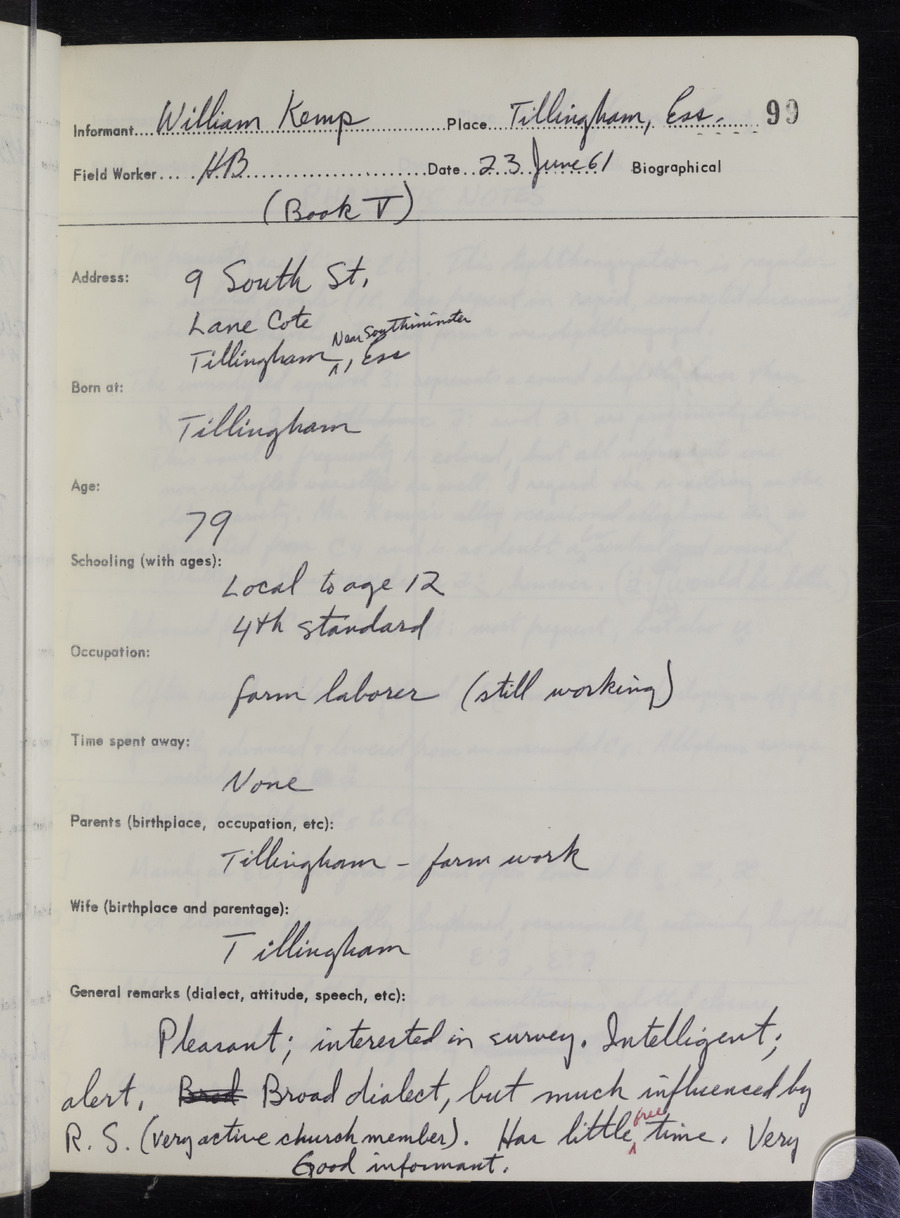 Informant....William Kemp....Place...Tillingham, Ess. 99
Field Worker.... HB....Date..23 June 61 Biographical
(Book V)
Address: 9 South St.,
Lane Cote
Near Southminster
Tillingham ^, Ess
Born at:
Tillingham
Age:
79
Schooling (with ages):
Local to age 12
4th standard
Occupation:
farm laborer (still working)
Time spent away:
None
Parents (birthplace, occupation, etc):
Tillingham - farm work
Wife (birthplace and parentage):
Tillingham
General remarks (dialect, attitude, speech, etc):
Pleasant; interested in survey. Intelligent;
alert. Brod Broad dialect, but much influenced by
free
R. S. (very active church member). Has little ^ time. Very
Good informant.